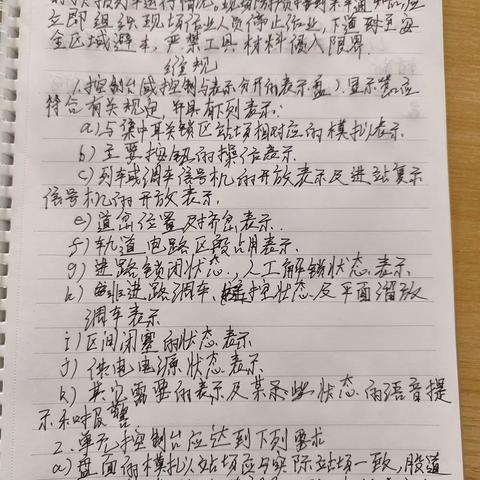 立即组织现场作业人员停止作业,下道到至安
全区域避车,严禁工具材料侵入限界.
维规
1.控制台(或控制与表示分开的表示盘).显示器应
符合有关规定,并具有下列表示:
a)与集中联锁区站场相对应的模拟表示
b)主要按钮的操作表示
c)列车或调车信号机的开放表示及进站复示
信号机的开放表示.
e)道岔位置及挤岔表示.
f)轨道电路区段占用表示.
g)进路锁闭状态.,人工解锁状态表示
h)非进路调车、控状态及平面溜放
调车表示
i)区间闭塞的状态表示
j)供电电源状态表示
k)其它需要的表示及某些状态的语音提
示和报警.
2.单元控制台应达到下列要求
a)盘面的模拟站场应与实际站场一致,股道